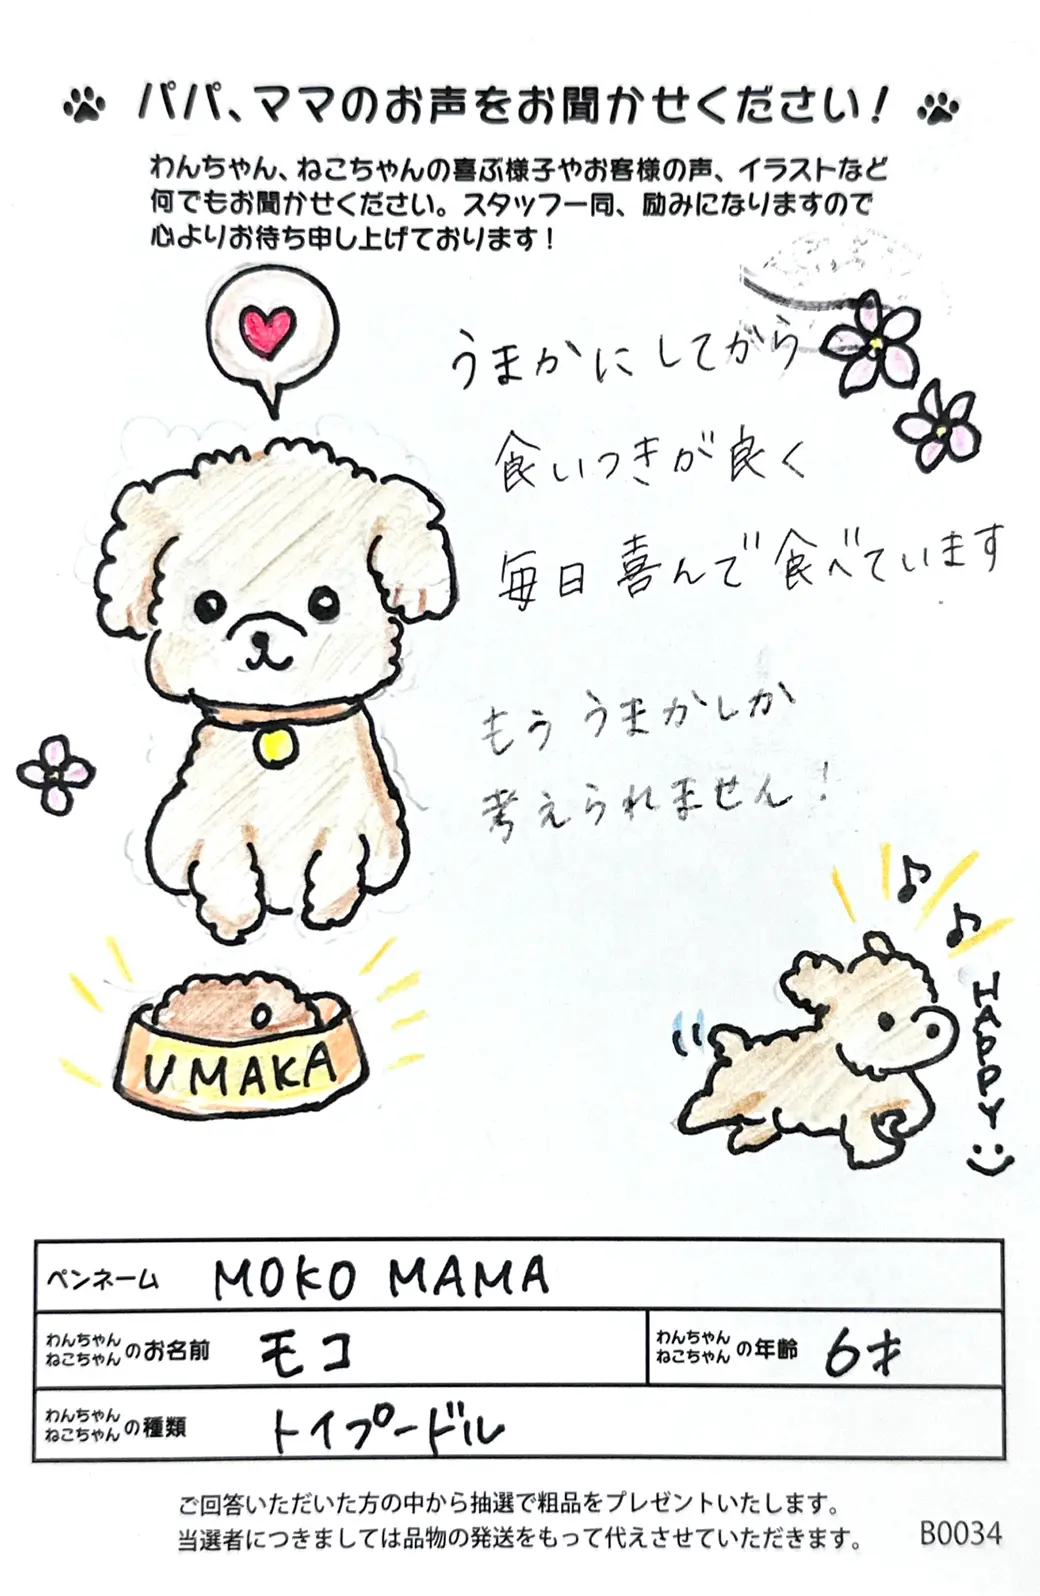 パパ、ママのお声をお聞かせください!
わんちゃん、ねこちゃんの喜ぶ様子やお客様の声、イラストなど
何でもお聞かせください。スタッフ一同、励みになりますので
心よりお待ち申し上げております!
うまかにしてから
食いつきが良く
毎日喜んで食べています
もううまかしか
考えられません!
UMAKA
HAPPY
ペンネーム MOKO MAMA
わんちゃん
ねこちゃん のお名前 モコ
わんちゃん
ねこちゃん の年齢 6才
わんちゃん
ねこちゃん の種類 トイプードル
ご回答いただいた方の中から抽選で粗品をプレゼントいたします。
当選者につきましては品物の発送をもって代えさせていただきます。
B0034